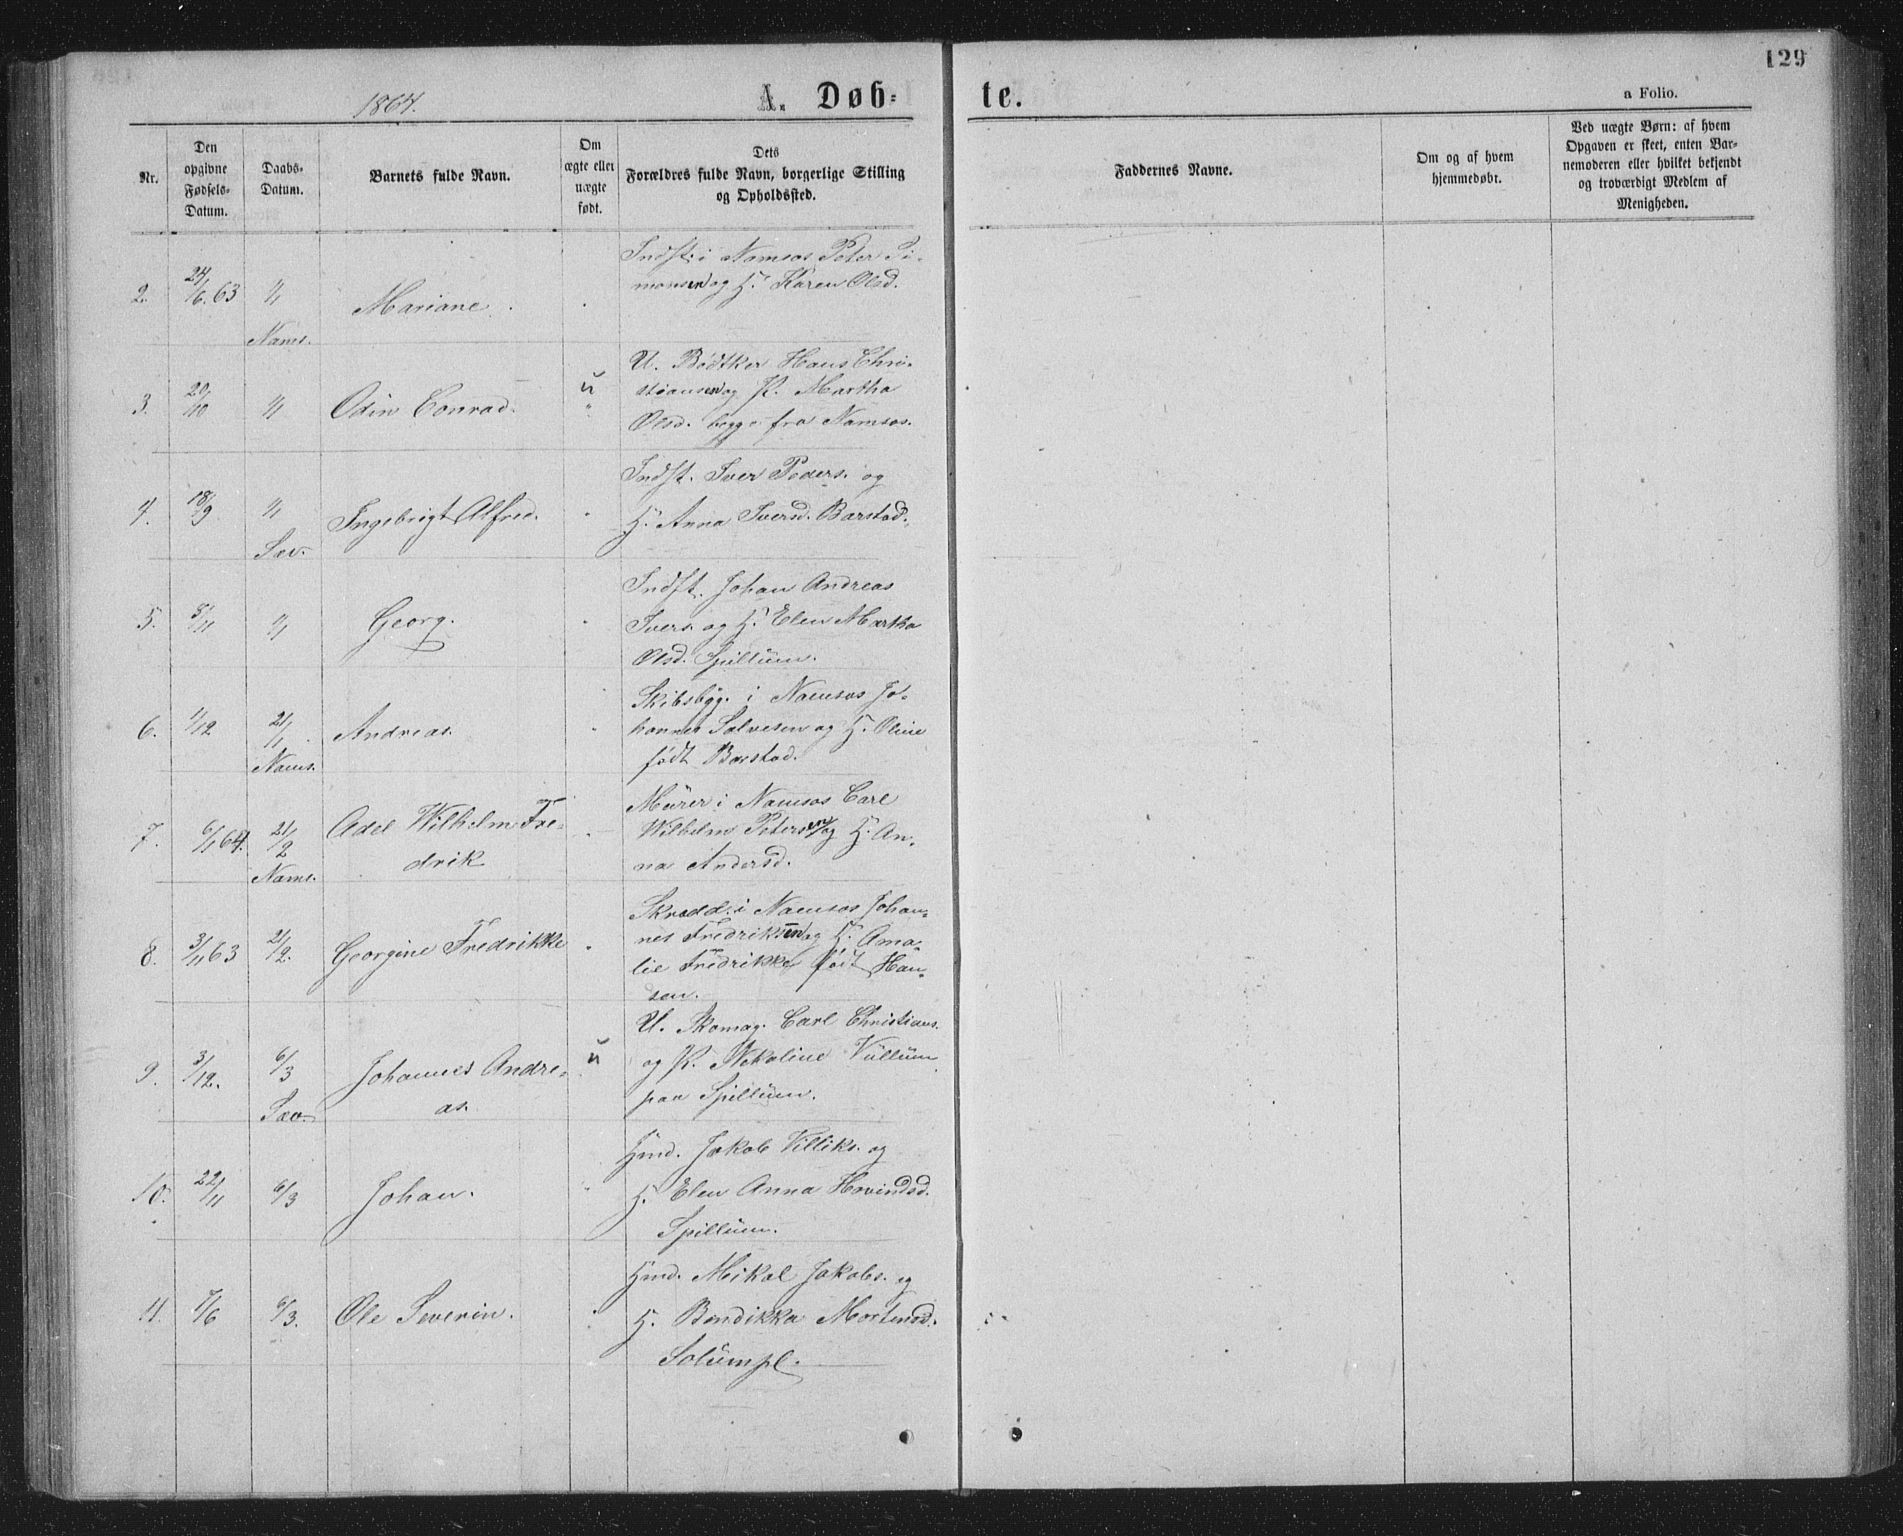 129
1864.
A. Døb-
te.
a Folio.
Nr.
Den
opgivne
Fødsels-
Datum.
Daabs-
Datum.
Barnets fulde Navn.
Om
ægte eller
uægte
født.
Dets
Forældres fulde Navn, borgerlige Stilling
og Opholdssted.
Faddernes Navne.
Om og af hvem
hjemmedøbt.
Ved uægte Børn: af hvem
Opgaven er skeet, enten Bar-
nemoderen eller hvilket bekjendt
og troværdigt Medlem af
Menigheden.
Indst. i Namsos Peter Si-
2. 24/6.63 " Mariane monsen og H. Karen Olsd.
Nams.
U. Bødtker Hans Chri-
3. 20/10 " Odin Conrad. u stiansen og P. Martha
Olsd. begge fra Namsos.
Indst. Iver Peders. og
4. 18/9 " Ingebrigt Alfred. H. Anna Iversd. Barstad.
Sæv.
Indst. Johan Andreas
5. 5/11 " Georg. Ivers. og H. Elen Martha
Olsd. Spillum.
Skibsbyg. i Namsos Jo-
6. 1/12 21/1 Andreas. hannes Salvesen og H. Oline
Nams. født Barstad.
Murer i Namsos Carl
7. 6/1 64. 21/2 Adel Wilhelm Fre- Wilhelm Petersen og H. An-
Nams. drik na Andersd.
Skrædd. i Namsos Johan-
8. 3/11 63 21/2. Georgine Fredrikke nes Fredriksen og H. Ama-
lie Fredrikke født Han-
sen.
U. Skomag. Carl Christians.
9. 3/12. 6/3 Johannes Andre- u og P. Nikoline Vullum
Sæv. as. paa Spillum.
Hmd. Jakob Villiks. og
10. 22/11 6/3 Johan. H. Elen Anna Hovindsd.
Spillum.
Hmd. Mikal Jakobs. og
11. 7/6 6/3. Ole Severin. H. Bendikka Mortensd.
Solumpl.